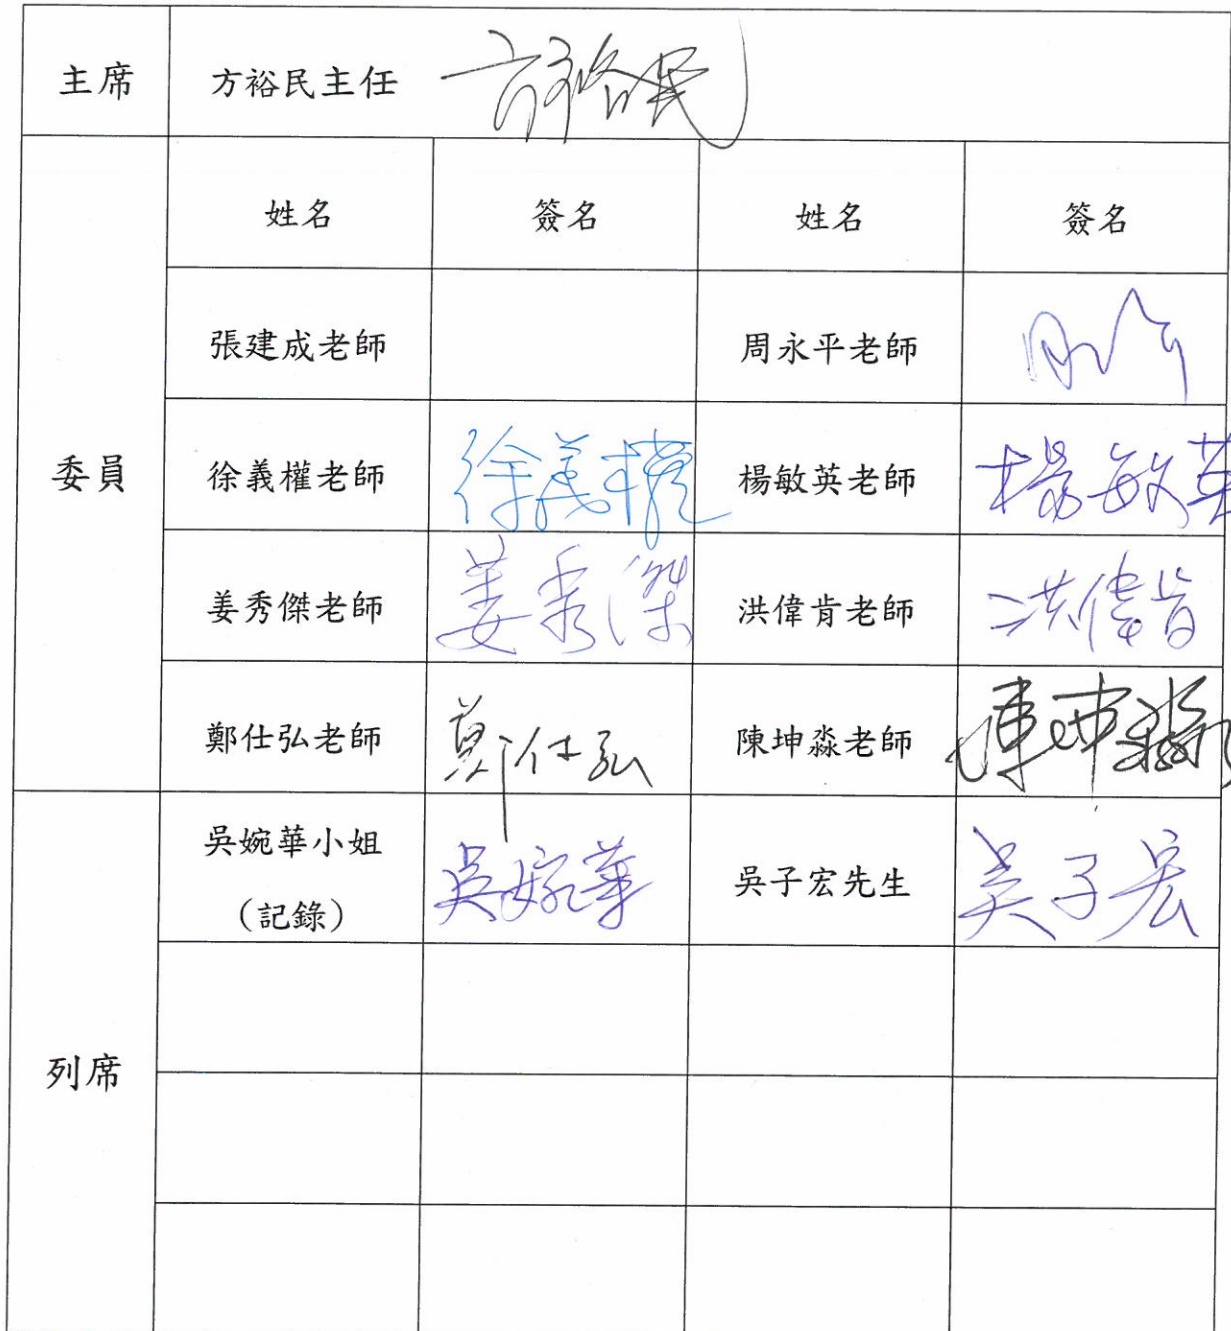 主席 方裕民主任 方裕民
姓名 簽名 姓名 簽名
張建成老師 周永平老師
委員 徐義權老師 徐義權 楊敏英老師 楊敏英
姜秀傑老師 姜秀傑 洪偉肯老師 洪偉肯
鄭仕弘老師 鄭仕弘 陳坤淼老師 陳坤淼
吳婉華小姐 吳婉華 吳子宏先生 吳子宏
(記錄)
列席